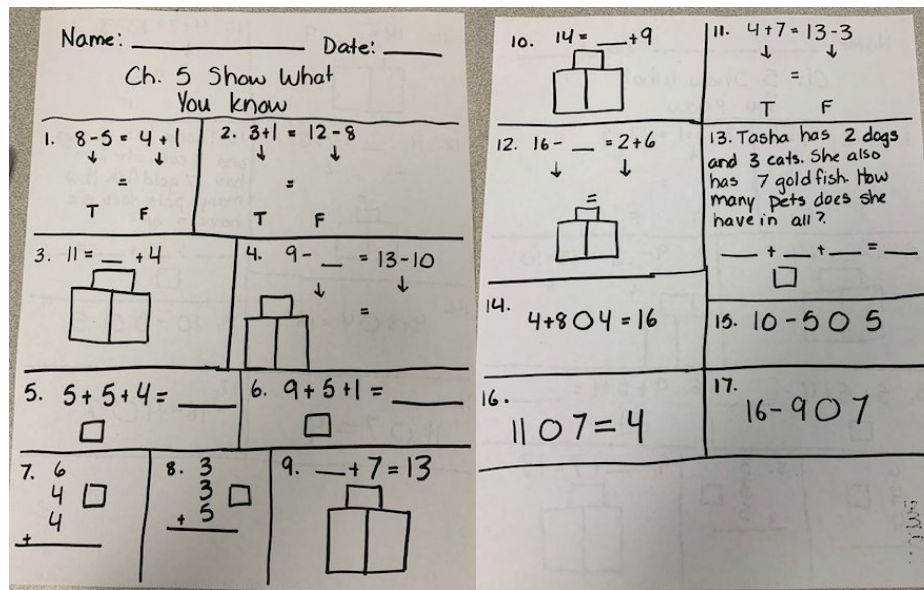 Name: ____________ Date: ____
Ch. 5 Show What
You Know
1. 8-5 = 4+1
↓ ↓
=
T F
2. 3+1 = 12-8
↓ ↓
=
T F
3. 11 = __ +4
4. 9- __ = 13-10
↓ ↓
=
5. 5+5+4= ____
6. 9+5+1 = ____
7. 6
4
+ 4
8. 3
3
+ 5
9. __ + 7 = 13
10. 14 = __ +9
11. 4+7 = 13-3
↓ ↓
=
T F
12. 16- __ = 2+6
↓ ↓
=
13. Tasha has 2 dogs
and 3 cats. She also
has 7 goldfish. How
many pets does she
have in all?
__ + __ + __ = __
14.
4+8 ○ 4 = 16
15. 10-5 ○ 5
16.
11 ○ 7 = 4
17.
16-9 ○ 7